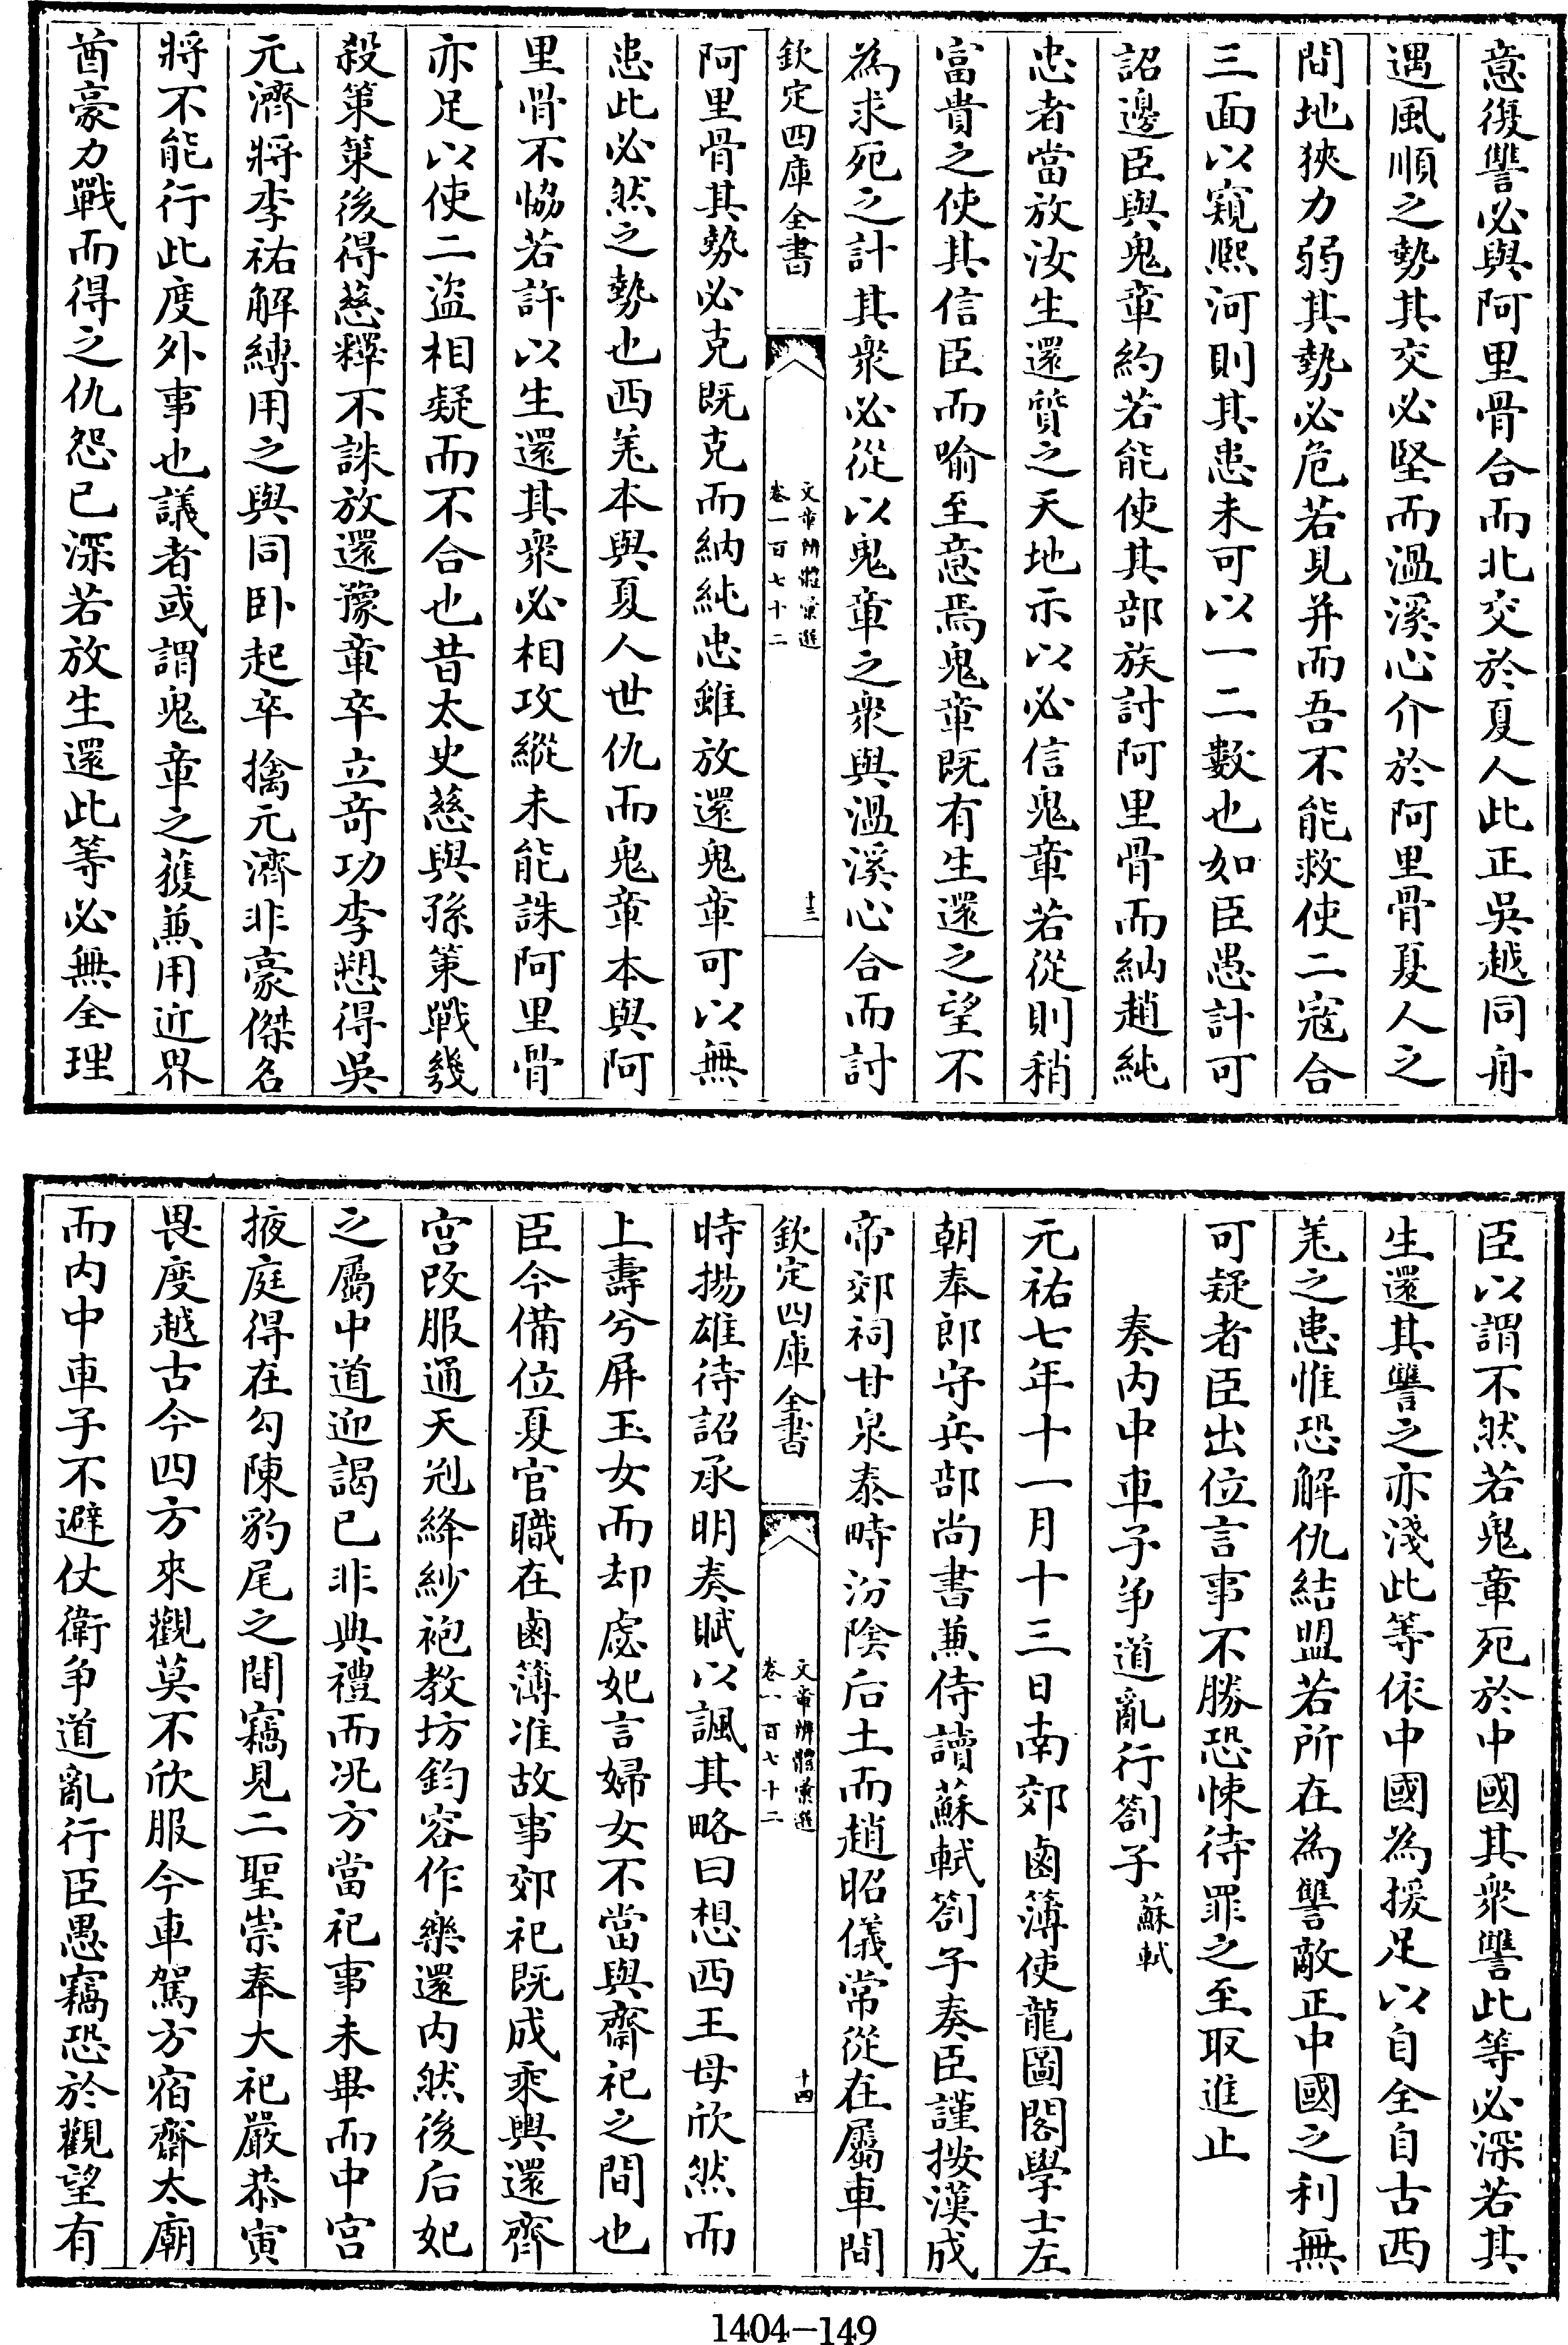 意復讐必與阿里骨合而北交於夏人此正吳越同舟
遇風順之勢其交必堅而溫溪心介於阿里骨夏人之
間地狹力弱其勢必危若見并而吾不能救使二寇合
三面以窺熈河則其患未可以一二數也如臣愚計可
詔邊臣與鬼章約若能使其部族討阿里骨而納趙純
忠者當放汝生還質之天地示以必信鬼章若從則稍
富貴之使其信臣而喻至意焉鬼章既有生還之望不
為求死之計其衆必從以鬼章之衆與溫溪心合而討
欽定四庫全書
文章辨體彙選
卷一百七十二
十三
阿里骨其勢必克既克而納純忠雖放還鬼章可以無
患此必然之勢也西羗本與夏人世仇而鬼章本與阿
里骨不恊若許以生還其衆必相攻縱未能誅阿里骨
亦足以使二盜相疑而不合也昔太史慈與孫策戰幾
殺策策後得慈釋不誅放還豫章卒立竒功李愬得吳
元濟將李祐解縛用之與同卧起卒擒元濟非豪傑名
將不能行此度外事也議者或謂鬼章之獲兼用近界
酋豪力戰而得之仇怨已深若放生還此等必無全理
臣以謂不然若鬼章死於中國其衆讐此等必深若其
生還其讐之亦淺此等依中國為援足以自全自古西
羗之患惟恐解仇結盟若所在為讐敵正中國之利無
可疑者臣出位言事不勝恐悚待罪之至取進止
奏内中車子争道亂行劄子 蘇軾
元祐七年十一月十三日南郊鹵簿使龍圖閣學士左
朝奉郎守兵部尚書兼侍讀蘇軾劄子奏臣謹按漢成
帝郊祠甘泉泰畤汾隂后土而趙昭儀常從在屬車間
欽定四庫全書
文章辨體彙選
卷一百七十二
十四
時揚雄待詔承明奏賦以諷其略曰想西王母欣然而
上壽兮屏玉女而却處妃言婦女不當與齋祀之間也
臣今備位夏官職在鹵簿准故事郊祀既成乘輿還齋
宫改服通天冠絳紗袍教坊鈞容作樂還内然後后妃
之屬中道迎謁已非典禮而况方當祀事未畢而中宫
掖庭得在勾陳豹尾之間竊見二聖崇奉大祀嚴恭寅
畏度越古今四方來觀莫不欣服今車駕方宿齋太廟
而内中車子不避仗衛争道亂行臣愚竊恐於觀望有
1404-149